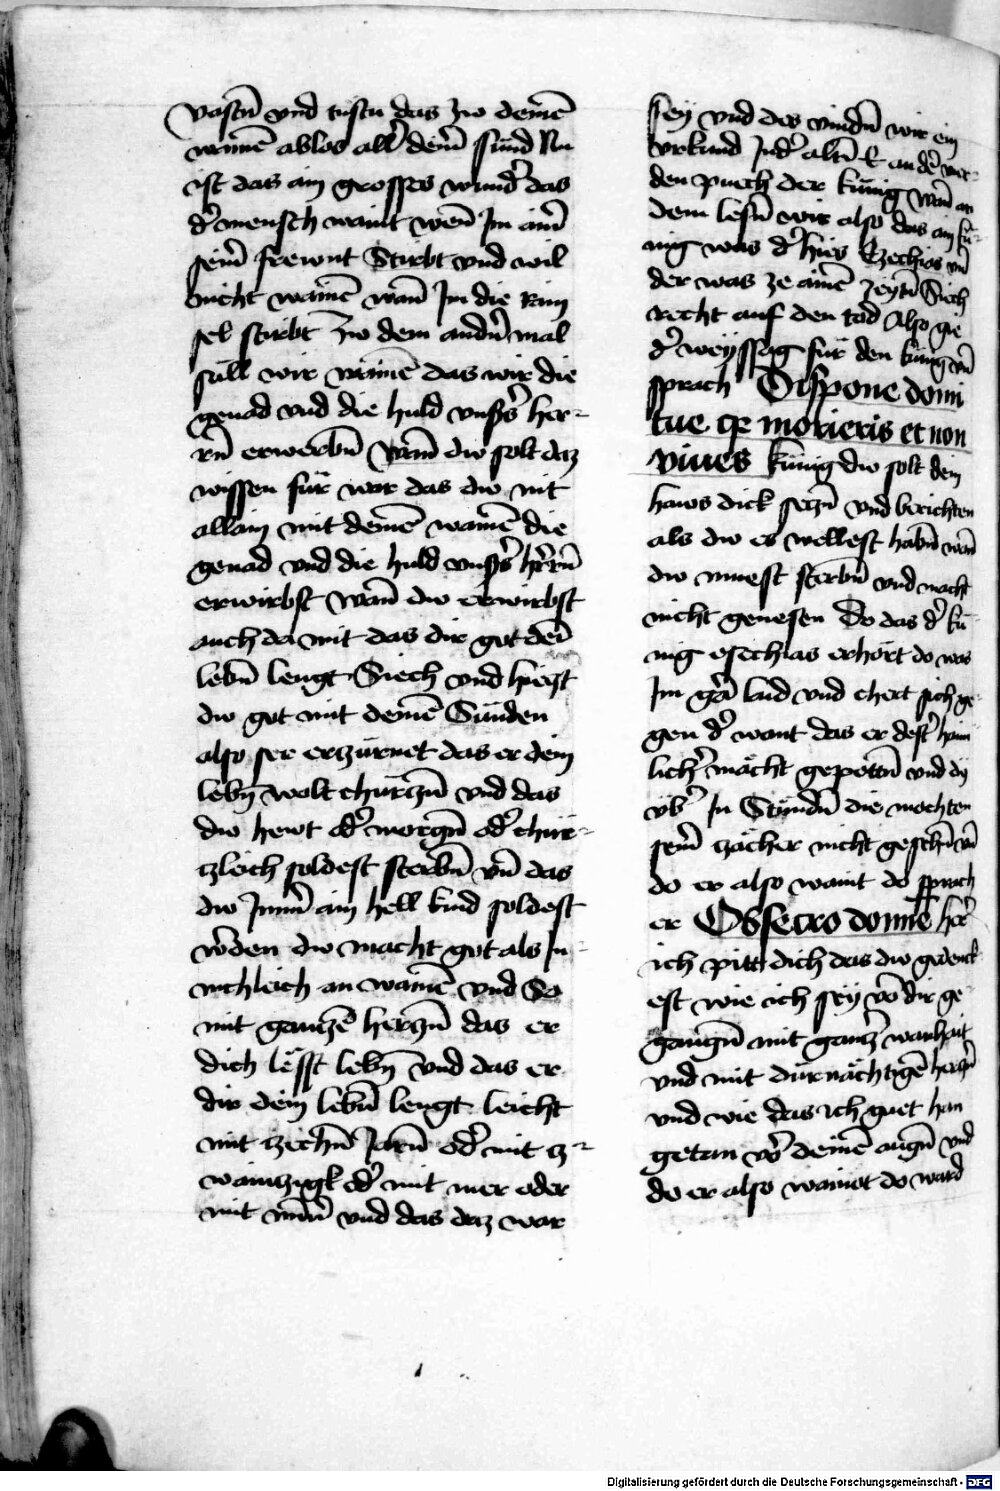 vastn̄ vnd tustu das zw deinē
wainē ablos all̕ dein̄ sund Nu
ist das ain grosses wund̕ das
d̕ mensch waint wen̄ Im ain̄
sein̄ frewnt Stirbt vnd wil
nicht wainē wan̄ Im die Aim
sel stirbt Zw dem andn̄ mal
sull wir wainē das wir die
genad vnd die huld vnss̕s her-
rn̄ erwerbn̄ Wan̄ dw solt daz
wissen für war das dw nit
allain mit deinē wainē die
genad vnd die huld vnss̕s hr̄rn̄
erwirbst Wan̄ dw erwirbst
auch da mit das dir got dein̄
lebn̄ lengt Siech vnd hietst
dw got mit deinē Sünden
also ser erzürnet das er dein
lebn̄ wolt churczn̄ vnd das
dw hewt od̕ morgn̄ od̕ chür-
czleich soldest sterbn̄ vn̄ das
dw Imm̄ ain hell kind soldest
w̄den dw macht got als In-
nichleich an wainē vnd So
mit ganczē herczn̄ das er
dich lësst lebn̄ vnd das er
dir dein lebn̄ lengt leicht
mit zechn̄ Jarn̄ od̕ mit z-
wainczigk od̕ mit mer oder
mit minn̄ vnd das daz war
sey vnd des vindn̄ wir ein
vrkund Ind̕ altn̄ E an dē vier-
den puech der kunig Wan̄ an
dem lesn̄ wir also das ain ku-
nig was d̕ hies Ezechias vn̄
der was ze ainē zeytn̄ Siech
recht auf den tod Also gie
d̕ weyssag für den kunig vn̄
sprach Dispone domi
tue qr morieris et non
viues kunig dw solt dein
haws dick seczn̄ vnd berichten
als dw es wellest habn̄ wan̄
dw muest sterbn̄ vnd macht
nicht genesen Do das d̕ ku-
nig esechias erhört do was
Im gar laid vnd chert sich ge-
gen d̕ want das er dest̕ haim
lich̕ mächt gepetn̄ vnd dy
vb̕ In Stundn̄ die mochten
sein̄ zächer nicht gesehn̄ vn̄
do er also waint do sprach
er Obsecro domine her̕
ich pitt dich das dw gedenck
est wie ich sey vō dir ge
gangn̄ mit gancz̕ warhait
vnd mit dürnächtigē herczn̄
vnd wie das ich guet han
getan vo̕ deinē augn̄ vnd
do er also wainot do ward